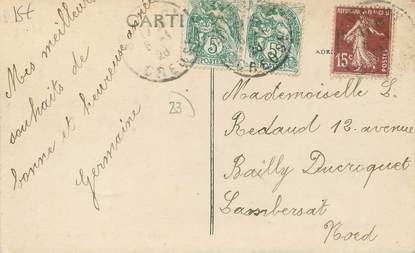 15f
CARTE
Mes meilleurs
souhaits de
bonne et heureuse année
Germaine
23
CREUSE
5c
POSTES
5c
POSTES
15c
POSTES
ADR
Mademoiselle L.
Redaud 12. avenue
Bailly Ducroquet
Lambersat
Nord